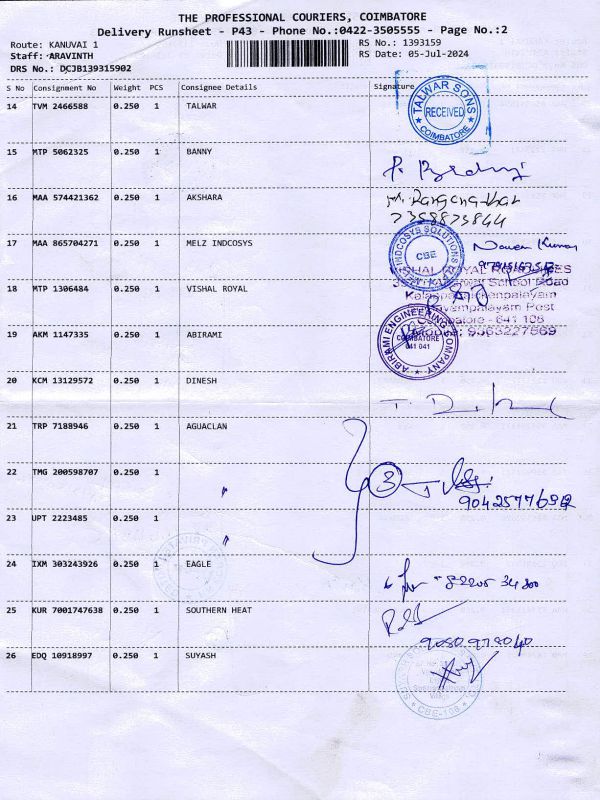 THE PROFESSIONAL COURIERS, COIMBATORE
Delivery Runsheet - P43 - Phone No.:0422-3505555 - Page No.:2
Route: KANUVAI 1
RS No.: 1393159
Staff: ARAVINTH
RS Date: 05-Jul-2024
DRS No.: DCJB139315902
S No Consignment No Weight PCS Consignee Details Signature
14 TVM 2466588 0.250 1 TALWAR
TALWAR SONS
RECEIVED
COIMBATORE
15 MTP 5062325 0.250 1 BANNY
16 MAA 574421362 0.250 1 AKSHARA
7358873844
17 MAA 865704271 0.250 1 MELZ INDCOSYS
INDCOSYS SOLUTIONS
CBE
Naveen Kumar
18 MTP 1306484 0.250 1 VISHAL ROYAL
School Road
Post
Coimbatore - 641 108
Mobile: 9363227569
19 AKM 1147335 0.250 1 ABIRAMI
ABIRAMI ENGINEERING COMPANY
COIMBATORE
641 041
20 KCM 13129572 0.250 1 DINESH
21 TRP 7188946 0.250 1 AGUACLAN
22 TMG 200598707 0.250 1 "
3
23 UPT 2223485 0.250 1 "
24 IXM 303243926 0.250 1 EAGLE
25 KUR 7001747638 0.250 1 SOUTHERN HEAT
26 EDQ 10918997 0.250 1 SUYASH
CBE-108